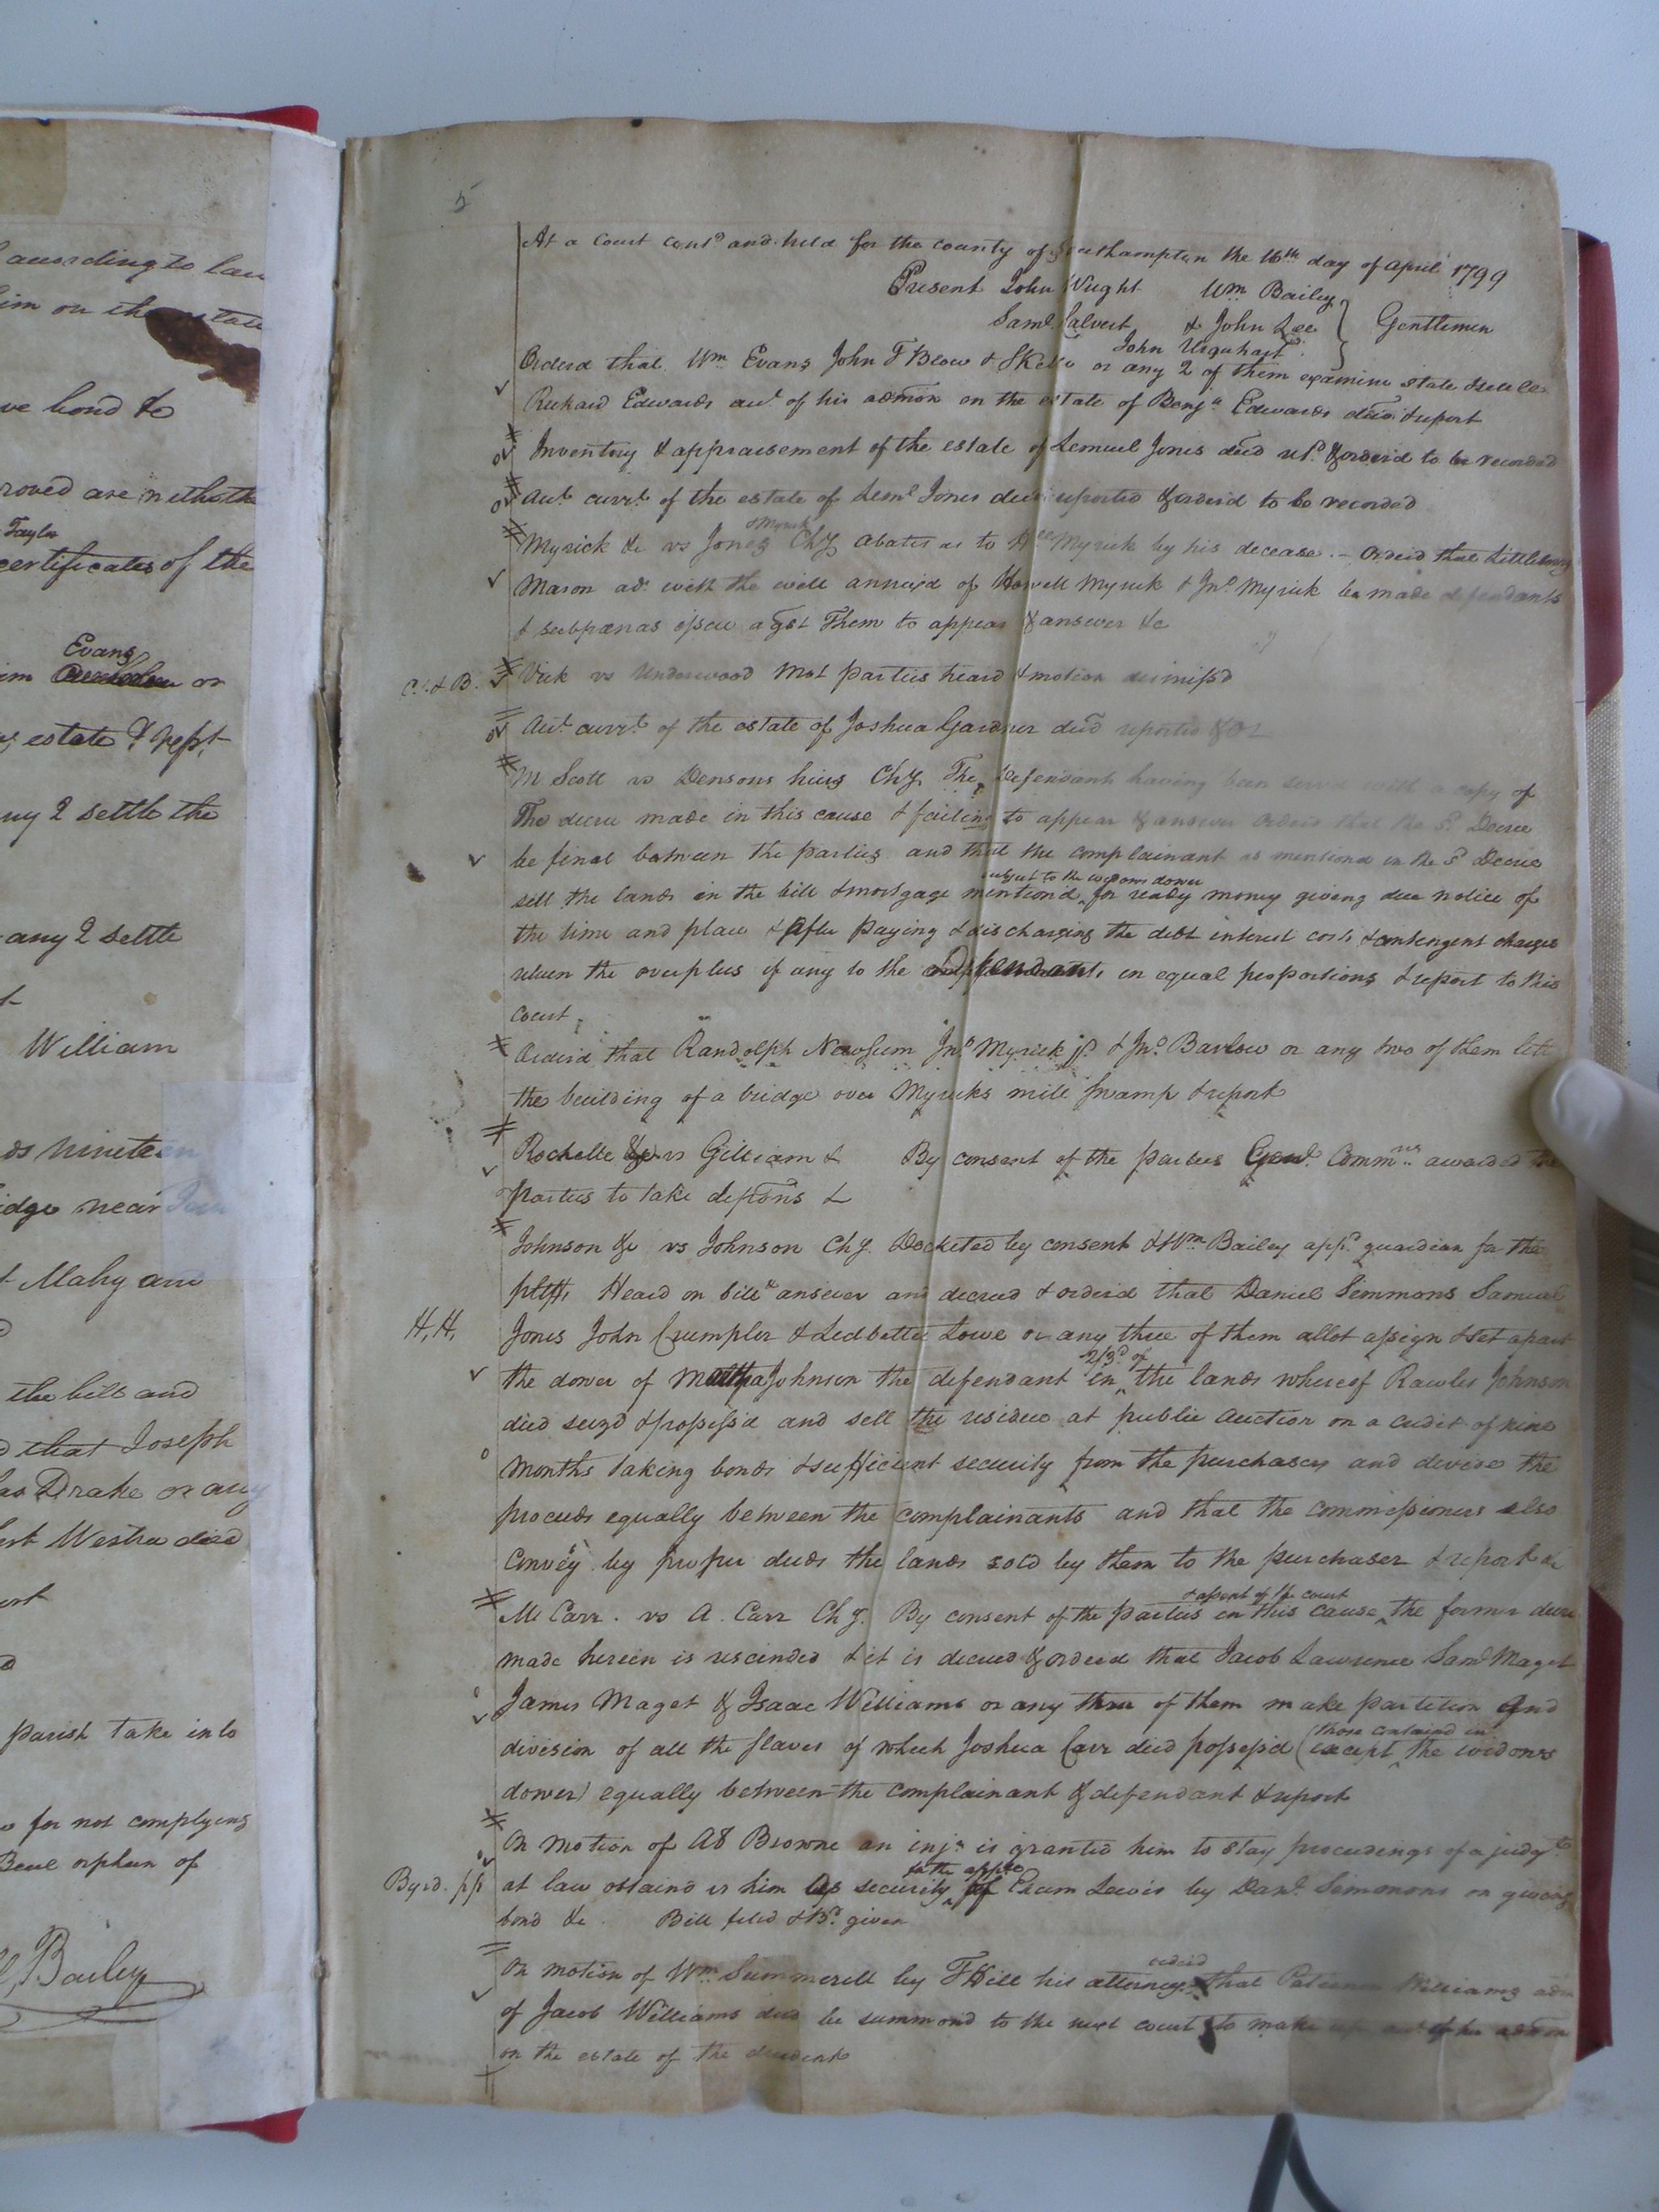 according to law
him on the estate
ve bond &c
roved are in the
Taylor
certificates of the
Evans
im or
estate & rept
any 2 settle the
any 2 settle
William
ds nineteen
idge near
Mahy and
the bill and
that Joseph
Drake or any
Westra decd
parish take into
for not complying
Beal orphan of
Bailey
5
At a Court contd and held for the county of Southampton the 16th day of april 1799
Present John Wright Wm Bailey
Saml Calvert & John Lee } Gentlemen
John Urquhart
Orderd that Wm Evans John T Blow & or any 2 of them examine state & settle
Richard Edwards aut. of his admon on the estate of Benja Edwards decd & report
Inventory & appraisement of the estate of Lemuel Jones decd retd & orderd to be recorded
aut. currt. of the estate of Leml Jones decd reported & orderd to be recorded
& Myrick
Myrick &c vs Jones Chy. abates as to Hll Myrick by his decease. - Orderd that Littlebury
Mason adr. with the will annexd of Howell Myrick & Jno Myrick be made defendants
& subpœnas issue agst Them to appear & answer &c
C. & B. Vick vs Underwood Mot parties heard & motion dismissd
aut. currt. of the estate of Joshua Gardner decd reported & OR
M Scott vs Densons heirs Chy. The Defendants having been servd with a copy of
The decree made in this cause & failing to appear & answer Orderd that the sd. Decree
be final between the parties and that the complainant as mentiond in the sd Decree
subject to the widows dower
sell the lands in the bill & mortgage mentiond for ready money giving due notice of
the time and place & after paying & discharging the debt interest costs & contingent charges
return the overplus if any to the Defendants in equal proportions & report to this
court
Orderd that Randolph Newsum Jno. Myrick jr. & Jno. Barlow or any two of them let
the building of a bridge over Myricks mill swamp & report
Rochelle &c vs Gilliam & By consent of the parties Genl. Commns. awarded the
parties to take depons &
Johnson &c vs Johnson Chy. Docketed by consent & Wm Bailey appd guardian for the
pltfs, Heard on bill & answer and decreed & orderd that Daniel Simmons Samuel
H, H, Jones John Crumpler & Ledbetter Lowe or any three of them allot assign & set apart
2/3d of
the dower of Martha Johnson the defendant in the lands whereof Rawles Johnson
died seizd & possessd and sell the residue at public auction on a credit of nine
months taking bonds & sufficient security from the purchaser and devise the
proceeds equally between the complainants and that the commissioners also
Convey by proper deeds the lands sold by them to the purchaser & report &c
& assent of the court
M Carr. vs A. Carr Chy. By consent of the parties in this cause the former decree
made herein is rescinded & it is decreed & orderd that Jacob Lawrence Saml Maget
James Maget & Isaac Williams or any three of them make partition and
those containd in
division of all the slaves of which Joshua Carr died possessd (except the widows
dower) equally between the complainant & defendant & report
On motion of Browne an injn is granted him to stay proceedings of a judgt.
for the appce
Byrd. pp at law obtaind vs him as security of Exum Lewis by Danl. Simmons on giving
bond &c Bill filed & Bd. given
orderd
On motion of Wm Summerell by T Hill his attorney that Patience Williams adm
of Jacob Williams decd be summond to the next court to make up aut of her admon
on the estate of the decedent